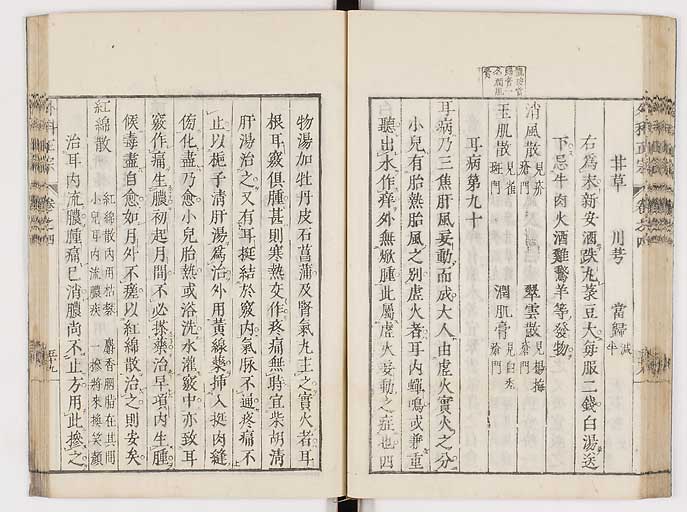 甘草 川芎 當歸 減半
右爲末新安酒跌丸菉豆大每服二錢白湯送
下忌牛肉火酒雞鵞羊等發物
消風散 見疥瘡門 翠雲散 見楊梅瘡門
玉肌散 見雀斑門 潤肌膏 見白禿瘡門
耳病第九十
耳病乃三焦肝風妄動而成大人由虛火實火之分
小兒有胎熱胎風之別虛火者耳内蟬鳴或兼重
聽出水作痒外無焮腫此屬虛火妄動之症也四
物湯加牡丹皮石菖蒲及腎氣丸主之實火者耳
根耳竅俱腫甚則寒熱交作疼痛無時宜柴胡淸
肝湯治之又有耳挺結於竅内氣脉不通疼痛不
止以梔子淸肝湯爲治外用黃線藥挿入挺肉縫
傍化盡乃愈小兒胎熱或浴洗水灌竅中亦致耳
竅作痛生膿初起月間不必搽藥治早項内生腫
候毒盡自愈如月外不瘥以紅綿散治之則安矣
紅綿散 紅綿散内用枯礬 麝香胭脂在其間
小兒耳内流膿疾 一摻將來換笑顏
治耳内流膿腫痛已消膿尚不止方用此摻之
外科正宗 卷之四
外科正宗 卷之四